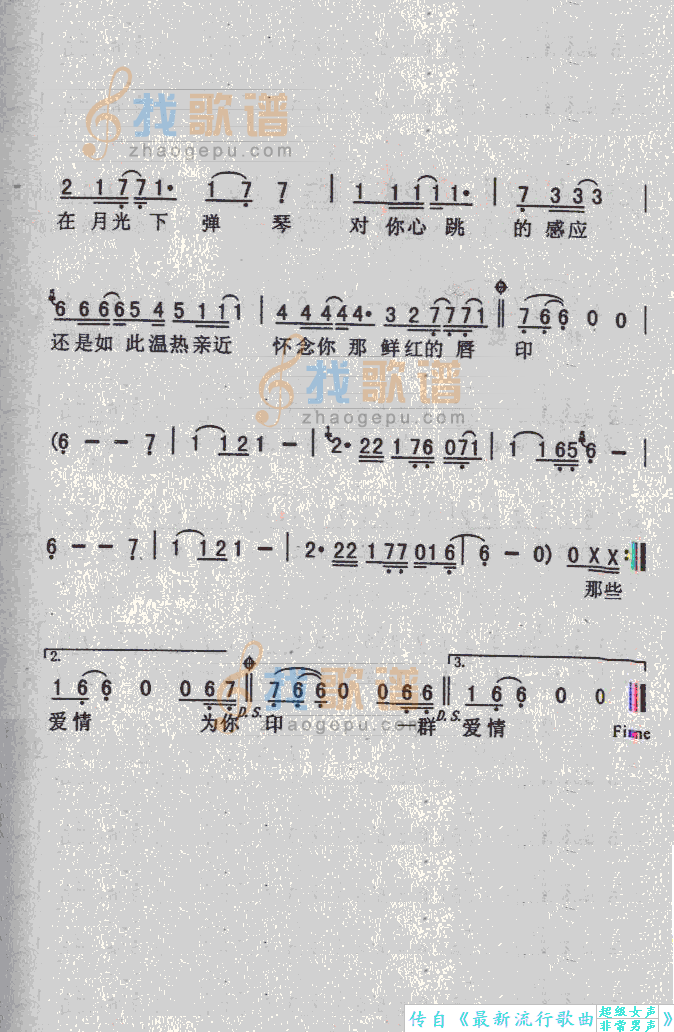 找歌谱
zhaogepu.com
2 1 7 7 1· 1 7 7 | 1 1 1 1 1· 7 3 3 3 |
在 月 光 下 弹 琴 对 你 心 跳 的 感 应
6 6 6 6 5 4 5 1 1 1 | 4 4 4 4 4· 3 2 7 7 7 1 || 7 6 6 0 0 |
还 是 如 此 温 热 亲 近 怀 念 你 那 鲜 红 的 唇 印
找歌谱
zhaogepu.com
(6 – – 7 | 1 1 2 1 – | 2· 2 2 1 7 6 0 7 1 | 1 1 6 5 6 – |
6 – – 7 | 1 1 2 1 – | 2· 2 2 1 7 7 0 1 6 | 6 – 0) 0 X X :||
那 些
2. 3.
1 6 6 0 0 6 7 || 7 6 6 0 0 6 6 || 1 6 6 0 0 ||
爱 情 为 你 D.S. 印 一 群 D.S. 爱 情 Fine
找歌谱
zhaogepu.com
传自《最新流行歌曲 超级女声 非常男声》